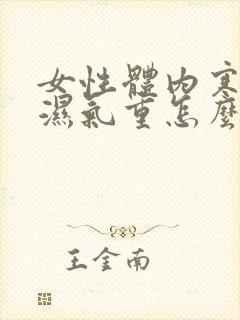 女性體內寒
濕氣重怎麼
王金南